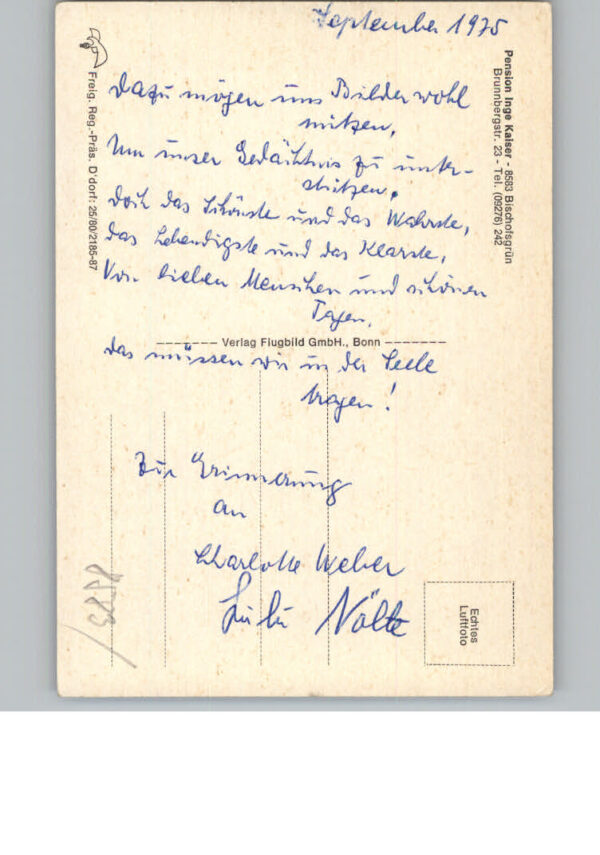 September 1975
Dazu mögen uns Bilder wohl
nützen,
Um unser Gedächtnis zu unter-
stützen.
Doch das Schönste und das Wahrste,
das Lebendigste und das Klarste,
Von lieben Menschen und schönen
Tagen,
das müssen wir in der Seele
tragen!
Zur Erinnerung
an
Charlotte Weber
Nölte
Pension Inge Kaiser - 8583 Bischofsgrün
Brunnbergstr. 23 - Tel. (09276) 242
Freig. Reg.-Präs. D'dorf: 25/80/2185-87
Verlag Flugbild GmbH., Bonn
Echtes
Luftfoto
8583